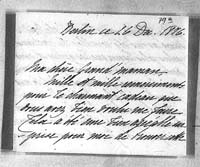 193
Berlin ce 26 Dec. 1886
Ma chère grand'maman
Mille et mille remerciements
pour le charmant cadeau que
vous avez bien voulu me faire
Cela a été une bien agréable sur
prise pour moi de